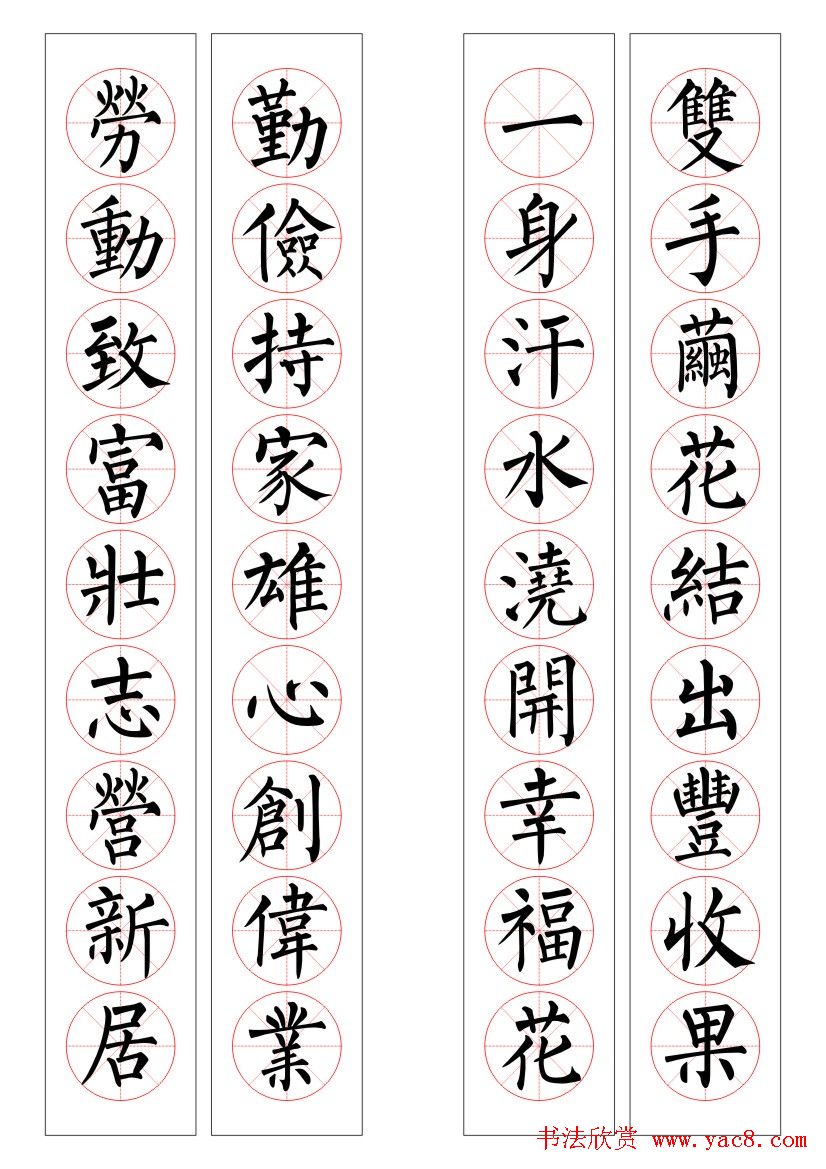 雙手繭花結出豐收果
一身汗水澆開幸福花
勤儉持家雄心創偉業
勞動致富壯志營新居
书法欣赏 www.yac8.com